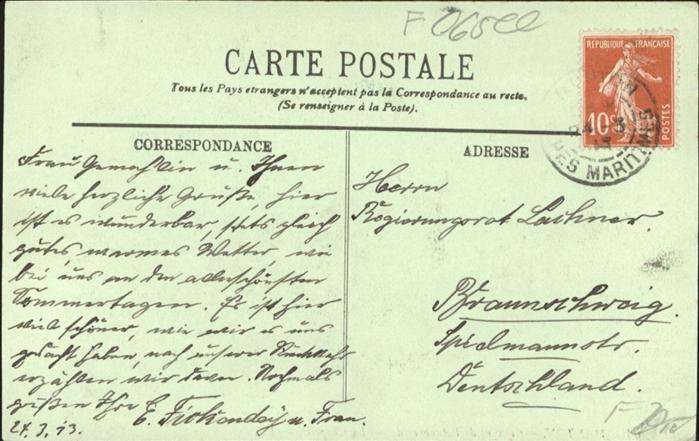 F 965ee
CARTE POSTALE
Tous les Pays etrangers n'acceptent pas la Correspondance au recto.
(Se renseigner à la Poste).
REPUBLIQUE FRANÇAISE
10c
POSTES
MARITIMES
CORRESPONDANCE
Frau Gemahlin u. Ihnen
viele herzliche Grüße, hier
ist es wunderbar, stets gleich
gutes warmes Wetter, wie
bei uns an den allerschönsten
Sommertagen. Es ist hier
viel schöner, wie wir es uns
gedacht haben, nach unserer Rückkehr
erzählen wir davon. Nochmals
grüßen Ihre E. u. Frau.
27.3.13.
ADRESSE
Herrn
Regierungsrat Lachner.
Braunschweig.
Spielmannstr.
Deutschland.